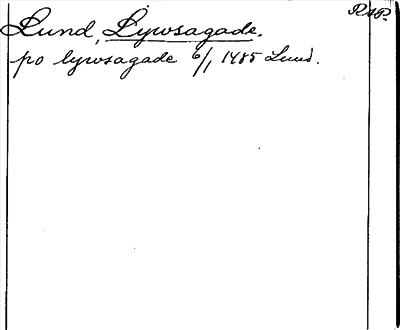 Lund, Lywsagade. RAP.
po lywsagade 6/1 1485 Lund.